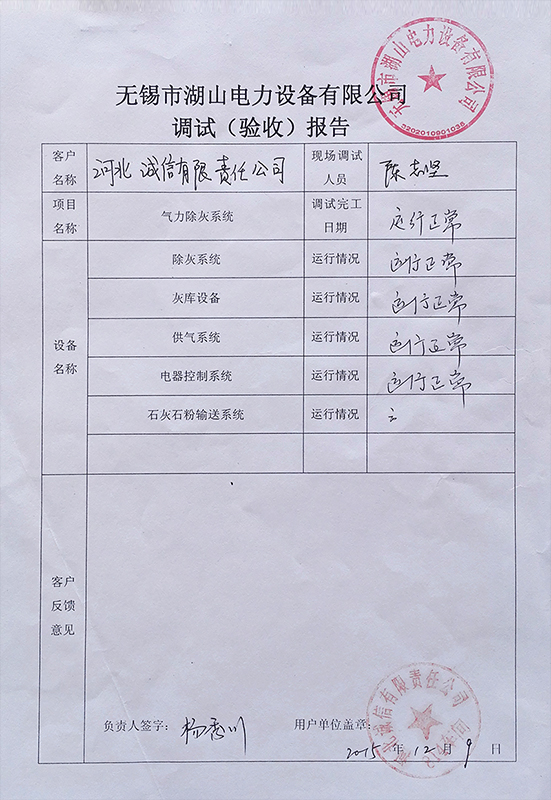 无锡市湖山电力设备有限公司
无锡市湖山电力设备有限公司
3202010901038
调试（验收）报告
客户名称 河北诚信有限责任公司 现场调试人员 陈志坚
项目名称 气力除灰系统 调试完工日期 运行正常
设备名称
除灰系统 运行情况 运行正常
灰库设备 运行情况 运行正常
供气系统 运行情况 运行正常
电器控制系统 运行情况 运行正常
石灰石粉输送系统 运行情况
客户反馈意见
河北诚信有限责任公司
负责人签字： 用户单位盖章：
2015 年 12 月 9 日